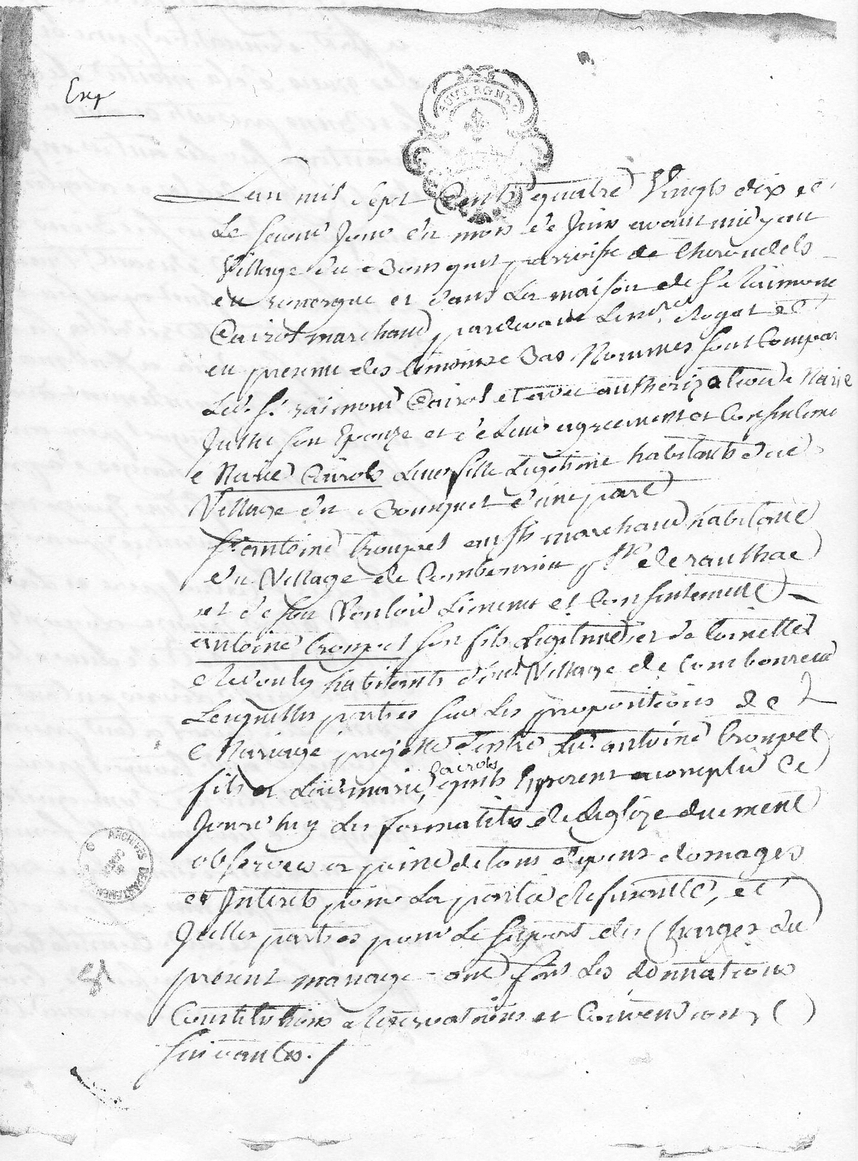 Exp
ROUERGNE
Lan mil sept Cents quatre Vingts dix et
Le second Jour du mois de Juin avant midy au
Village du Bousquet parroisse de Therondels
en rouergue et dans La maison de Sr. raimond
Cairol marchand, pardevant Le nre. Royal et
en presence des temoins Bas Nommes sont Compar
Led. Sr. raimond Cairol et avec authorization de Marie
son Epouze et de Leur agreement et Consenteme
Marie Cairols Leur fille Legitime habitants dud.
Village du Bousquet d'une part
Sr. antoine Croupet aussy marchand habitant
du Village de pse. de raulhac
et de son Vouloir Licence et Consentement
antoine Croupet son fils Legitime et de Toinette
habitants dud. Village de
Lesquelles parties sur Les propositions de
Mariage projetté d'entre Led. antoine Croupet
fils et Lad. marie Cairols quils seront accomplir Ce
Jourd'huy Les formalités de Leglize duement
observees a peine de tous depens domages
et Interets pour La partie refusante, et
Icelles parties pour Le suport des Charges du
present mariage ont fait Les donnations
Constitutions reservations et Conventions
suivantes. /
ARCHIVES DEPARTEMENTALES